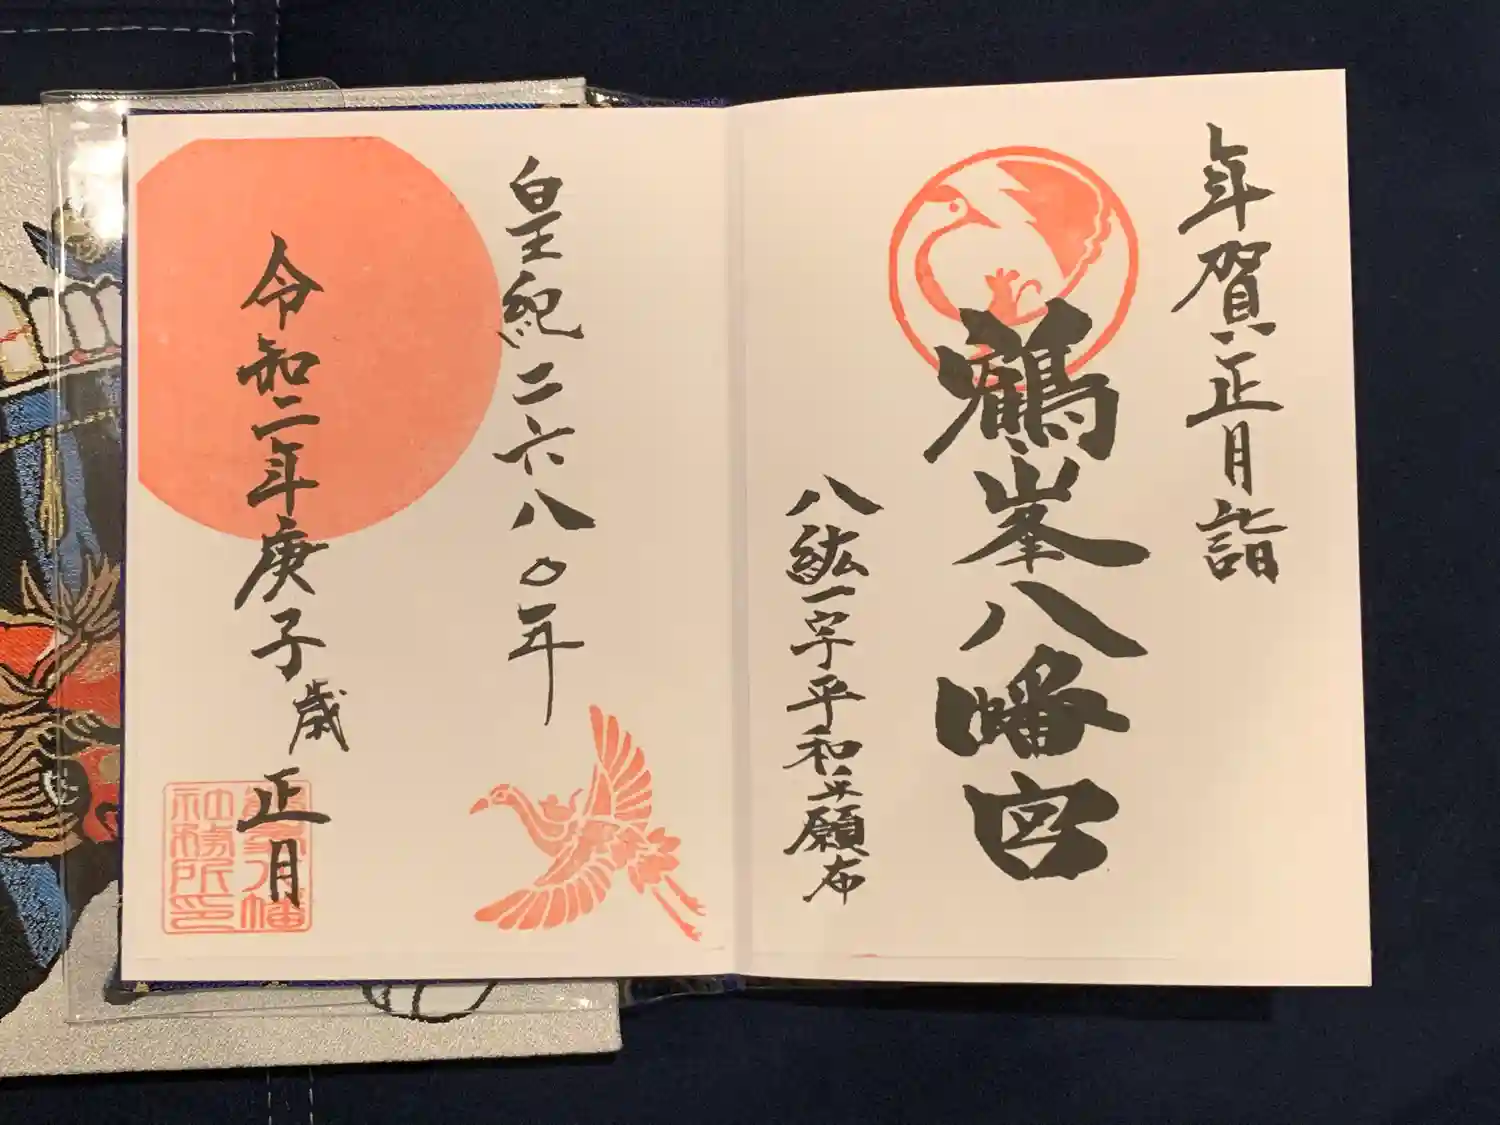 年賀正月詣
鶴峯八幡宮
八紘一宇平和立願布
皇紀二六八〇年
令和二年庚子歳正月
鶴峯八幡
社務所印